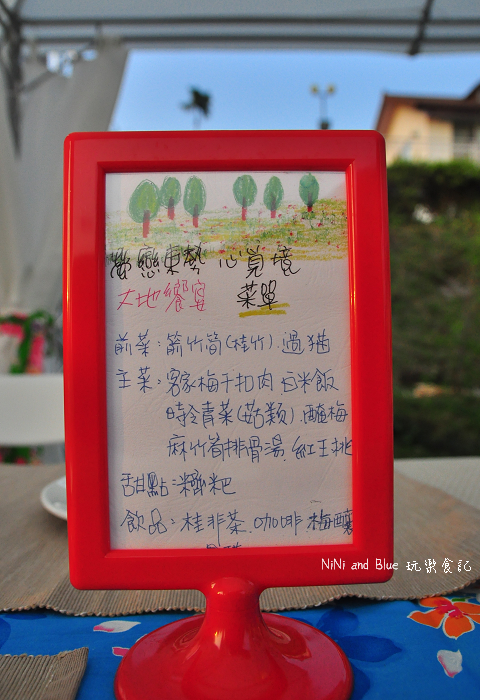 戀戀東勢 心覓境
大地饗宴 菜單
前菜:箭竹筍(桂竹).過貓
主菜:客家梅干扣肉.五米飯
時令青菜(菇類).醃梅
麻竹筍排骨湯.紅王桃
甜點:糍粑
飲品:桂非茶.咖啡.梅釀
NiNi and Blue 玩樂食記